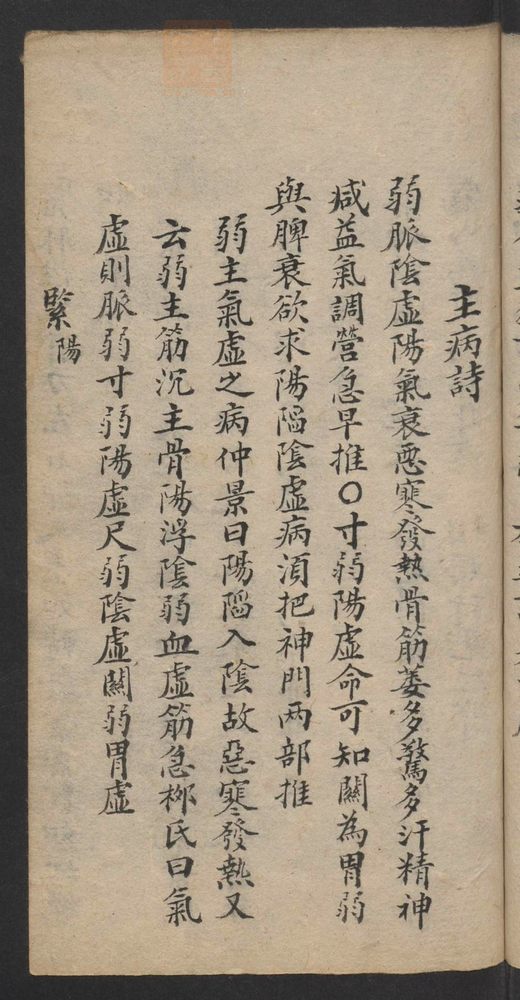 主病詩
弱脈陰虛陽氣衰惡寒發熱骨筋萎多驚多汗精神
咸益氣調營急早推〇寸弱陽虛命可知關為胃弱
與脾衰欲求陽陷陰虛病須把神門两部推
弱主氣虛之病仲景曰陽陷入陰故惡寒發熱又
云弱主筋沉主骨陽浮陰弱血虛筋急柳氏曰氣
虛則脈弱寸弱陽虛尺弱陰虛關弱胃虛
緊陽